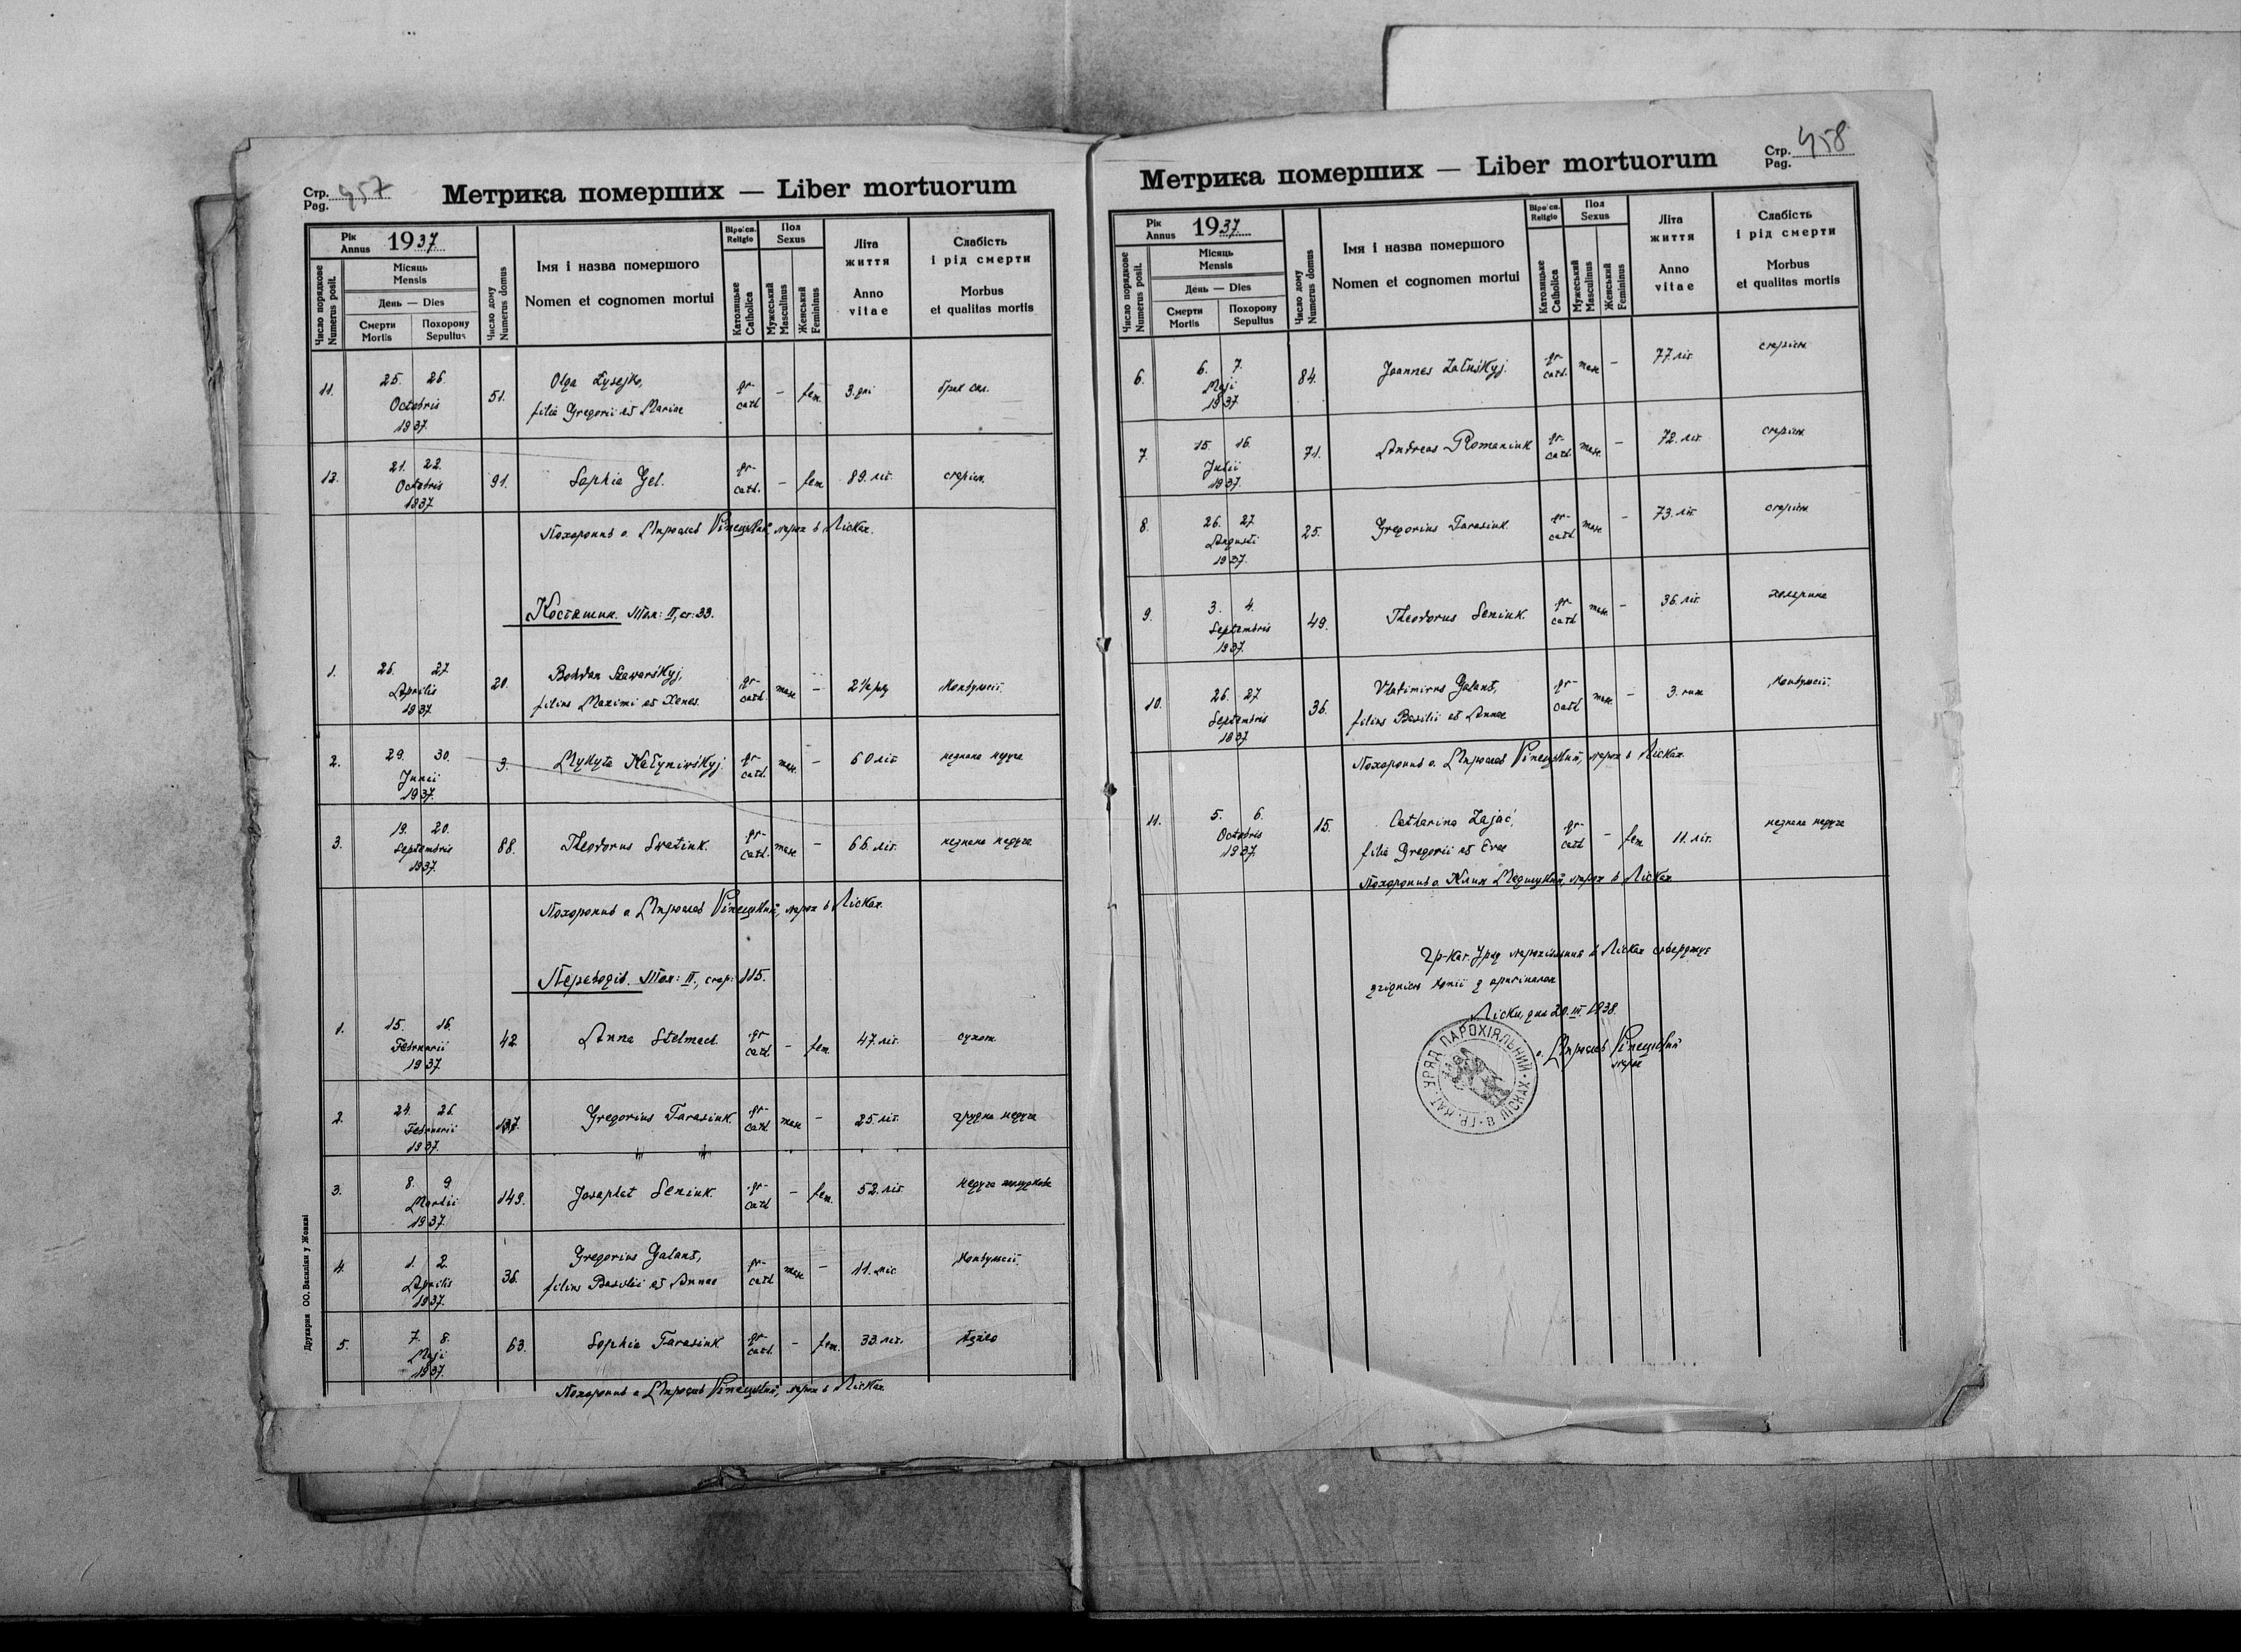 Стр. Pag. 457
Метрика померших — Liber mortuorum
Рік Annus 1937
Число порядкове Numerus posit.
Місяць Mensis
День — Dies
Смерти Mortis
Похорону Sepultus
Число дому Numerus domus
Імя і назва помершого
Nomen et cognomen mortui
Віроісп. Religio
Католицьке Catholica
Пол Sexus
Мужеський Masculinus
Женський Femininus
Літа життя
Anno vitae
Слабість і рід смерти
Morbus et qualitas mortis
11. 25. 26. Octobris 1937. 51. Olga Łysejko, filia Gregorii et Mariae gr-cath. — fem. 3. дні брак сил.
12. 21. 22. Octobris 1937 91. Sophia Gel. gr-cath. — fem 89. літ. старість.
Похоронив о. Мирослав Ріпецький, парох в Лісках.
Костяшин. Том: II, ст: 33.
1. 26. 27 Aprilis 1937. 20. Bohdan Szawarśkyj, filius Maximi et Xenae. gr-cath. masc. — 2½ конвульсії.
2. 29. 30. Junii 1937. 3. Mykyta Kałyniwśkyj. gr-cath. masc. — 60 літ незнана недуга
3. 19. 20. Septembris 1937. 88. Theodorus Swatiuk. gr-cath. masc. — 66. літ. незнана недуга
Похоронив о Мирослав Ріпецький, парох в Лісках.
Переводів. Том: II., стор: 115.
1. 15. 16. Februarii 1937. 42. Anna Stelmach. gr-cath. — fem. 47. літ. сухоти
2. 24. 26. Februarii 1937. 137. Gregorius Tarasiuk. gr-cath. masc. — 25. літ. грудна недуга
3. 8. 9. Martii 1937. 149. Josaphat Seniuk. gr-cath — fem. 52. літ. недуга
4. 1. 2. Aprilis 1937. 36. Gregorius Galant, filius Basilii et Annae gr-cath masc. — 11. міс конвульсії.
5. 7. 8. Maji 1937. 63. Sophia Tarasiuk gr-cath. — fem. 33. літ.
Похоронив о Мирослав Ріпецький, парох в Лісках
Друкарня ОО. Василіян у Жовкві
Стр. Pag. 458
Метрика померших — Liber mortuorum
Рік Annus 1937
Число порядкове Numerus posit.
Місяць Mensis
День — Dies
Смерти Mortis
Похорону Sepultus
Число дому Numerus domus
Імя і назва помершого
Nomen et cognomen mortui
Віроісп. Religio
Католицьке Catholica
Пол Sexus
Мужеський Masculinus
Женський Femininus
Літа життя
Anno vitae
Слабість і рід смерти
Morbus et qualitas mortis
6. 6. 7. Maji 1937 84. Joannes Załuśkyj. gr-cath. masc — 77. літ. старість
7. 15. 16. Julii 1937. 71. Andreas Romaniuk gr-cath. masc. — 72. літ. старість
8. 26. 27 Augusti 1937. 25. Gregorius Tarasiuk. gr-cath. masc. — 73. літ. старість
9. 3. 4. Septembris 1937. 49. Theodorus Seniuk. gr-cath masc. — 36. літ. холерина
10. 26. 27 Septembris 1937 36. Vladimirus Galant, filius Basilii et Annae gr-cath masc. — 3. конвульсії.
Похоронив о. Мирослав Ріпецький, парох в Лісках.
11. 5. 6. Octobris 1937. 15. Catharina Zając, filia Gregorii et Evae gr-cath — fem 11. літ. незнана недуга
Похоронив о. Клим Медицький, парох в Лісках
Гр-Кат. Уряд парохіяльний в Лісках стверджує
згідність копії з оригіналом
Ліски, дня 20. III. 1938.
о. Мирослав Ріпецький
парох
ГР. КАТ. УРЯД ПАРОХІЯЛЬНИЙ В ЛІСКАХ